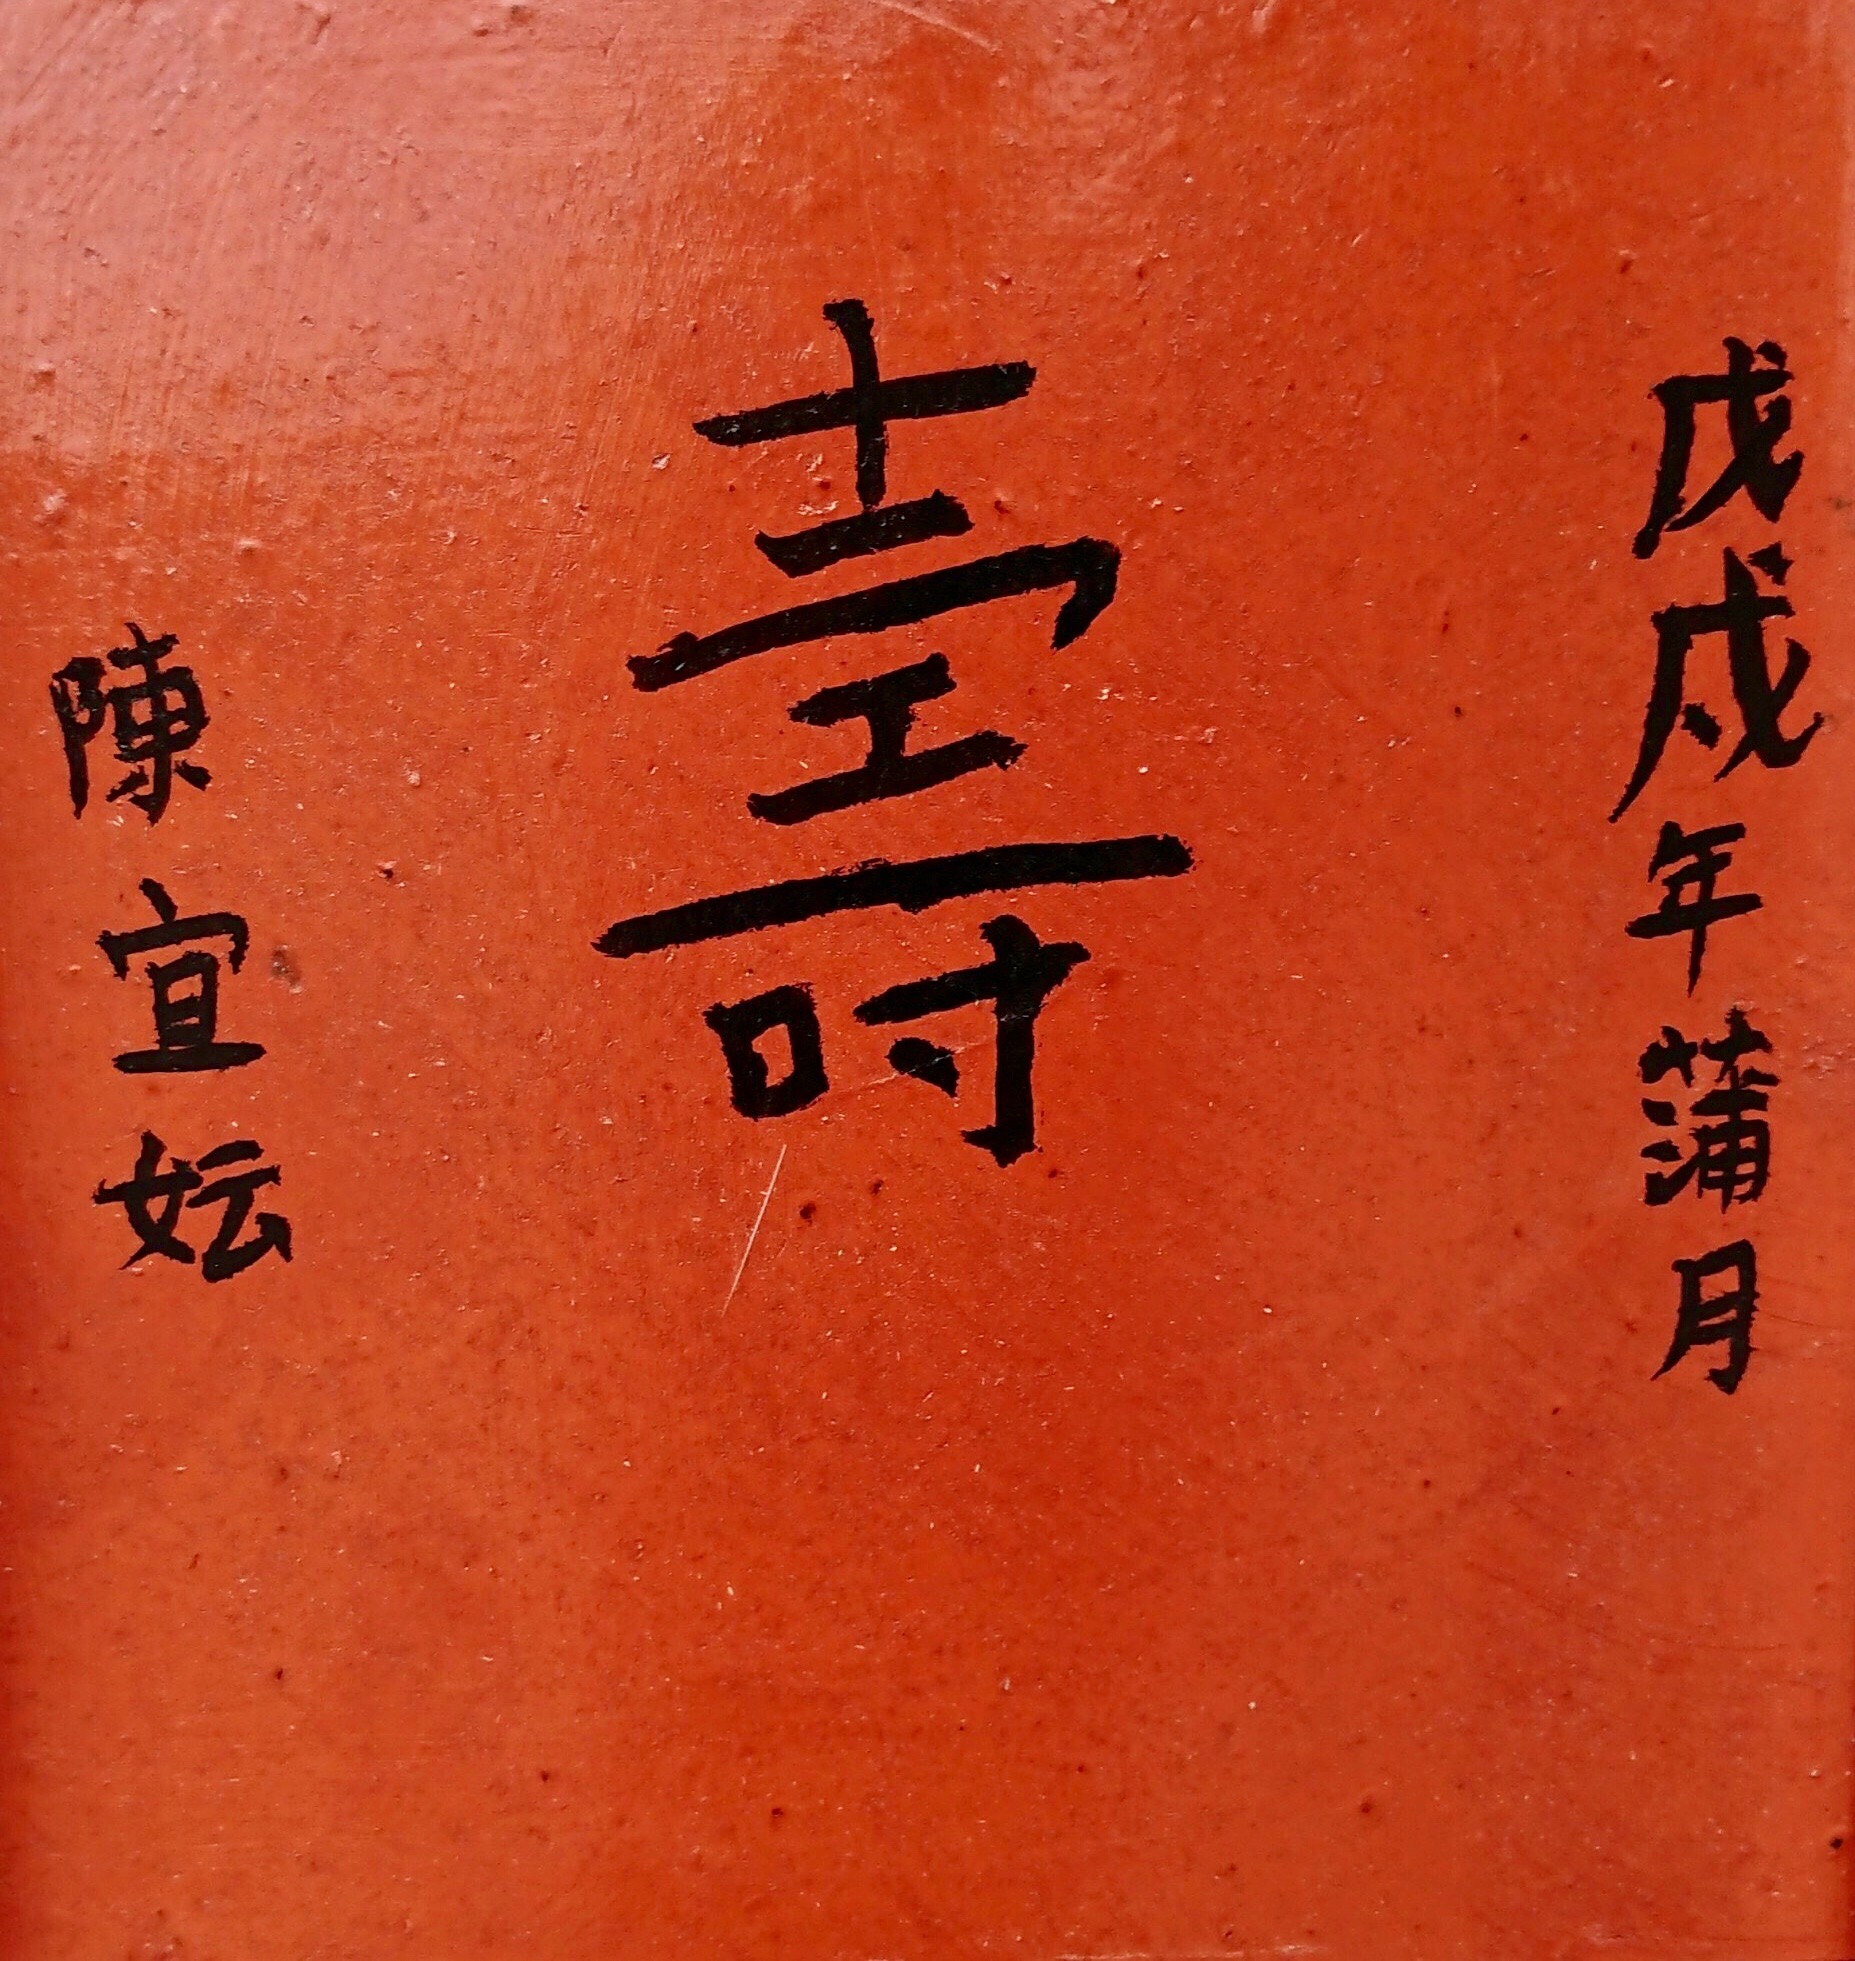 戊戌年蒲月
壽
陳宣妘